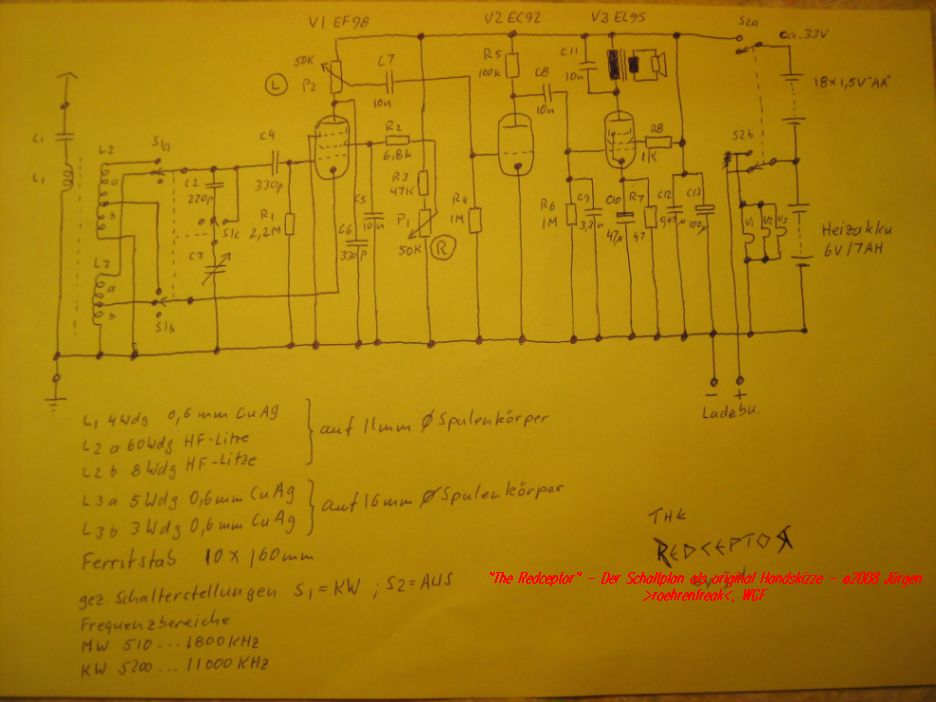 V1 EF98
V2 EC92
V3 EL95
S2a
ca. 33V
50K
P2
L
C7
10n
R5
100k
C8
10n
C11
10n
18 x 1,5V "AA"
C1
L1
L2
a
b
S1a
C4
330p
R2
6,8k
R3
47K
P1
50K
R
R4
1M
R8
1K
S2b
C2
220p
S1c
C3
R1
2,2M
C5
10n
C6
330p
R6
1M
C9
3,3n
C10
47µ
R7
47
C12
0,47µ
C13
100µ
V1
V2
V3
Heizakku
6V/7AH
L3
a
b
S1b
-
+
Ladebu.
L1 4Wdg 0,6mm CuAg
L2 a 60Wdg HF-Litze
L2 b 8Wdg HF-Litze
auf 11mm Ø Spulenkörper
L3a 5Wdg 0,6mm CuAg
L3b 3Wdg 0,6mm CuAg
auf 16mm Ø Spulenkörper
Ferritstab 10 x 160mm
gez. Schalterstellungen S1=KW ; S2=AUS
Frequenzbereiche
MW 510 ... 1800KHz
KW 5200 ... 11000KHz
THE
REDCEPTOR
"The Redceptor" - Der Schaltplan als original Handskizze - ©2008 Jürgen
>roehrenfreak<, WGF